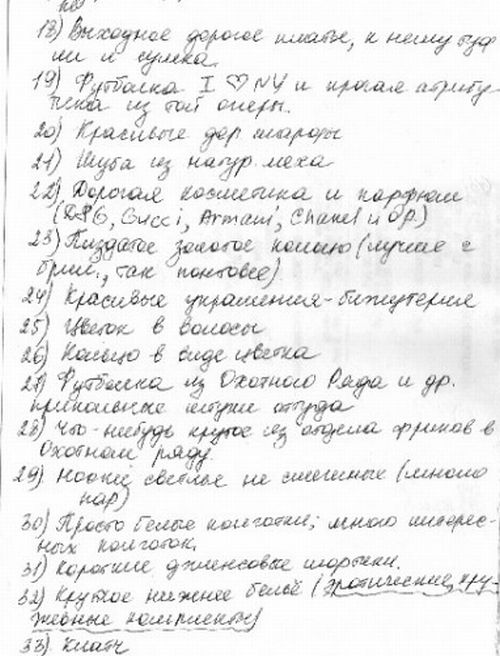 18) Выходное дорогое платье, к нему туф
ли и сумка.
19) Футболка I ♡ NY и прочая атрибу-
тика из той оперы.
20) Красивые дор
21) Шуба из натур. меха
22) Дорогая косметика и парфюм
(D&G, Gucci, Armani, Chanel и др.)
23) Пиздатое золотое кольцо (лучше с
брил., так понтовее)
24) Красивые украшения-бижутерия
25) Цветок в волосы
26) Кольцо в виде цветка
27) Футболка из Охотного Ряда и др.
прикольные штуки оттуда
28) Что-нибудь крутое из отдела фриков в
Охотном ряду.
29) Носки светлые не смешные (много
пар)
30) Просто белые колготки; много интерес-
ных колготок.
31) Короткие джинсовые шортики.
32) Крутое нижнее бельё (эротические, кру-
жевные комплекты)
33) Клатч